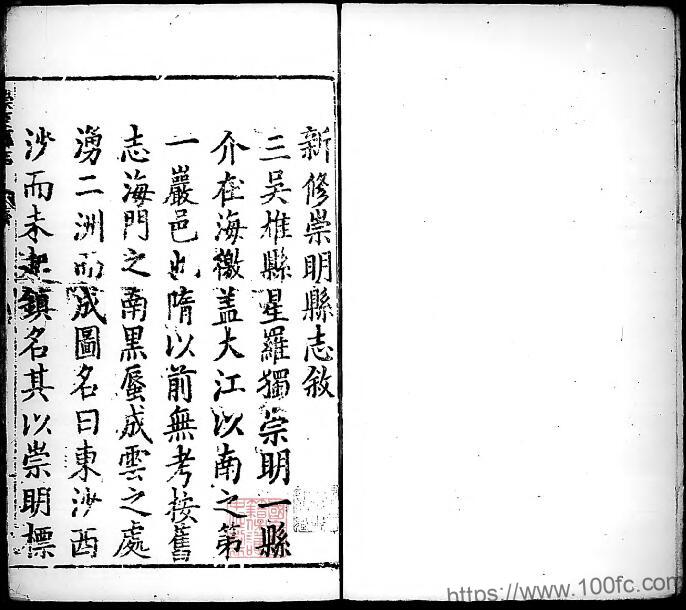 新修崇明縣志敘
三吳雄縣星羅獨崇明一縣
介在海徼盖大江以南之第
一巖邑也隋以前無考按舊
志海門之南黑蜃成雲之處
湧二洲而成圖名曰東沙西
沙而未起鎮名其以崇明標
https://www.100fc.com/